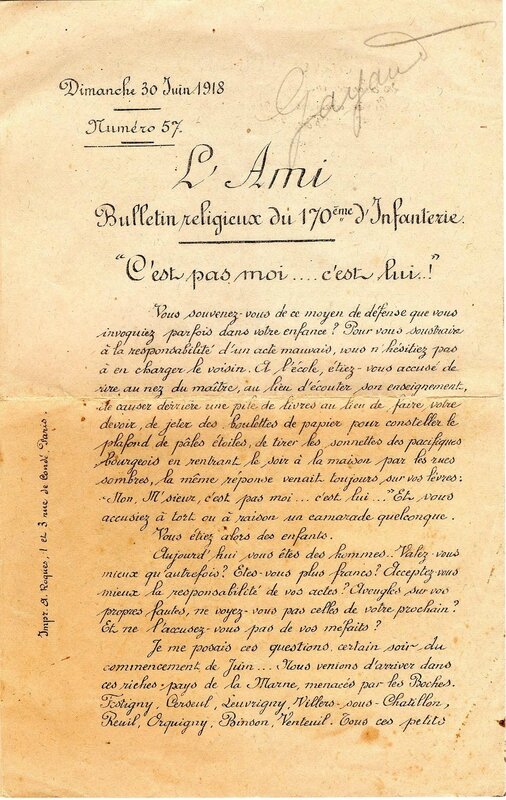 Dimanche 30 Juin 1918
Numéro 57.
Gayant
L'Ami
Bulletin religieux du 170ème d'Infanterie.
"C'est pas moi .... c'est lui..!"
Vous souvenez-vous de ce moyen de défense que vous
invoquiez parfois dans votre enfance? Pour vous soustraire
à la responsabilité d'un acte mauvais, vous n'hésitiez pas
à en charger le voisin. A l'école, étiez-vous accusé de
rire au nez du maître, au lieu d'écouter son enseignement,
de causer derrière une pile de livres au lieu de faire votre
devoir, de jeter des boulettes de papier pour consteller le
plafond de pâles étoiles, de tirer les sonnettes des pacifiques
bourgeois en rentrant le soir à la maison par les rues
sombres, la même réponse venait toujours sur vos lèvres:
"Mon, M'sieur, c'est pas moi ... c'est lui ..." Et vous
accusiez à tort ou à raison un camarade quelconque.
Vous étiez alors des enfants.
Aujourd'hui vous êtes des hommes. Valez-vous
mieux qu'autrefois? Etes-vous plus francs? Acceptez-vous
mieux la responsabilité de vos actes? Aveuglés sur vos
propres fautes, ne voyez-vous pas celles de votre prochain?
Et ne l'accusez-vous pas de vos méfaits?
Je me posais ces questions, certain soir du
commencement de Juin ... Nous venions d'arriver dans
ces riches pays de la Marne, menacés par les Boches.
Festigny, Cerseul, Leuvrigny, Villers-sous-Chatillon,
Reuil, Orquigny, Binson, Venteuil. Tous ces petits
Impr. A. Roques, 1 et 3 rue de Condé, Paris.